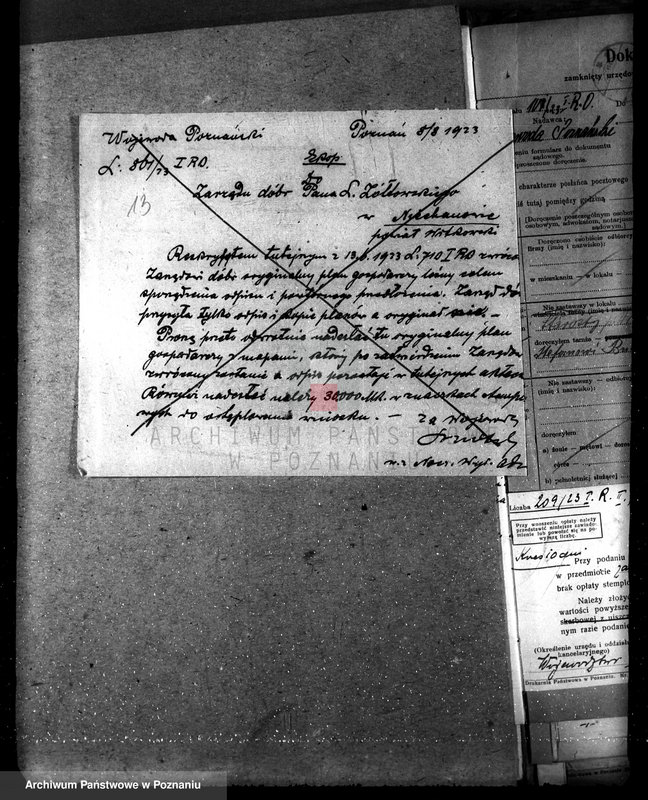 Wojewoda Poznański Poznań 8/8 1923
L: 861/23 I R.O.
Odpis
do
13
Zarządu dóbr Pana L. Żółtowskiego
w Niechanowie
powiat Witkowski
Reskryptem tutejszym z 13.6. 1923 L: 710 I RO
Zarządowi dóbr oryginalny plan gospodarczy celem
sporządzenia odpisu i ponownego przedłożenia. Zarząd dóbr
przysyła tylko odpis i kopie planów a oryginał
Proszę przeto odwrotnie nadesłać tu oryginalny plan
gospodarczy z mapami, który po zatwierdzeniu Zarządowi
zwrócony zostanie a odpis pozostaje w tutejszych aktach
Również nadesłać należy 30.000 Mk. w znaczkach
do ostęplowania wniosku. — Za Wojewodę
w. z. Nacz. Wydz.
ARCHIWUM PAŃSTWOWE
W POZNANIU
Dok
zamknięty urzędow
108/23 I R.O. Do
Nadawca:
Poznański
eniu formularz do dokumentu
sądowego.
proszono doręczenie.
charakterze posłańca pocztowego
tutaj pomiędzy godziną
(Doręczenie poszczególnym osobom
osobom, adwokatom, notarjuszom
sądowym).
Doręczono osobiście odbiorcy
firmy (imię i nazwisko):
w mieszkaniu — w lokalu —
Nie zastawszy w lokalu
doręczyłem tamże
Nie zastawszy — odbiorcy
(imię i nazwisko):
doręczyłem
a) żonie — mężowi — doros
córce —
b) pełnoletniej służącej —
Liczba 209/23 I. R. O.
Przy wnoszeniu opłaty należy
przedstawić niniejsze zawiado-
mienie lub powołać się na po-
wyższą liczbę.
Przy podaniu
w przedmiocie
brak opłaty stemplo
Należy złożyć
wartości powyższej
skarbowej z niszcz
nym razie podanie
(Określenie urzędu i oddziału
kancelaryjnego)
Drukarnia Państwowa w Poznaniu. Nr.
Archiwum Państwowe w Poznaniu